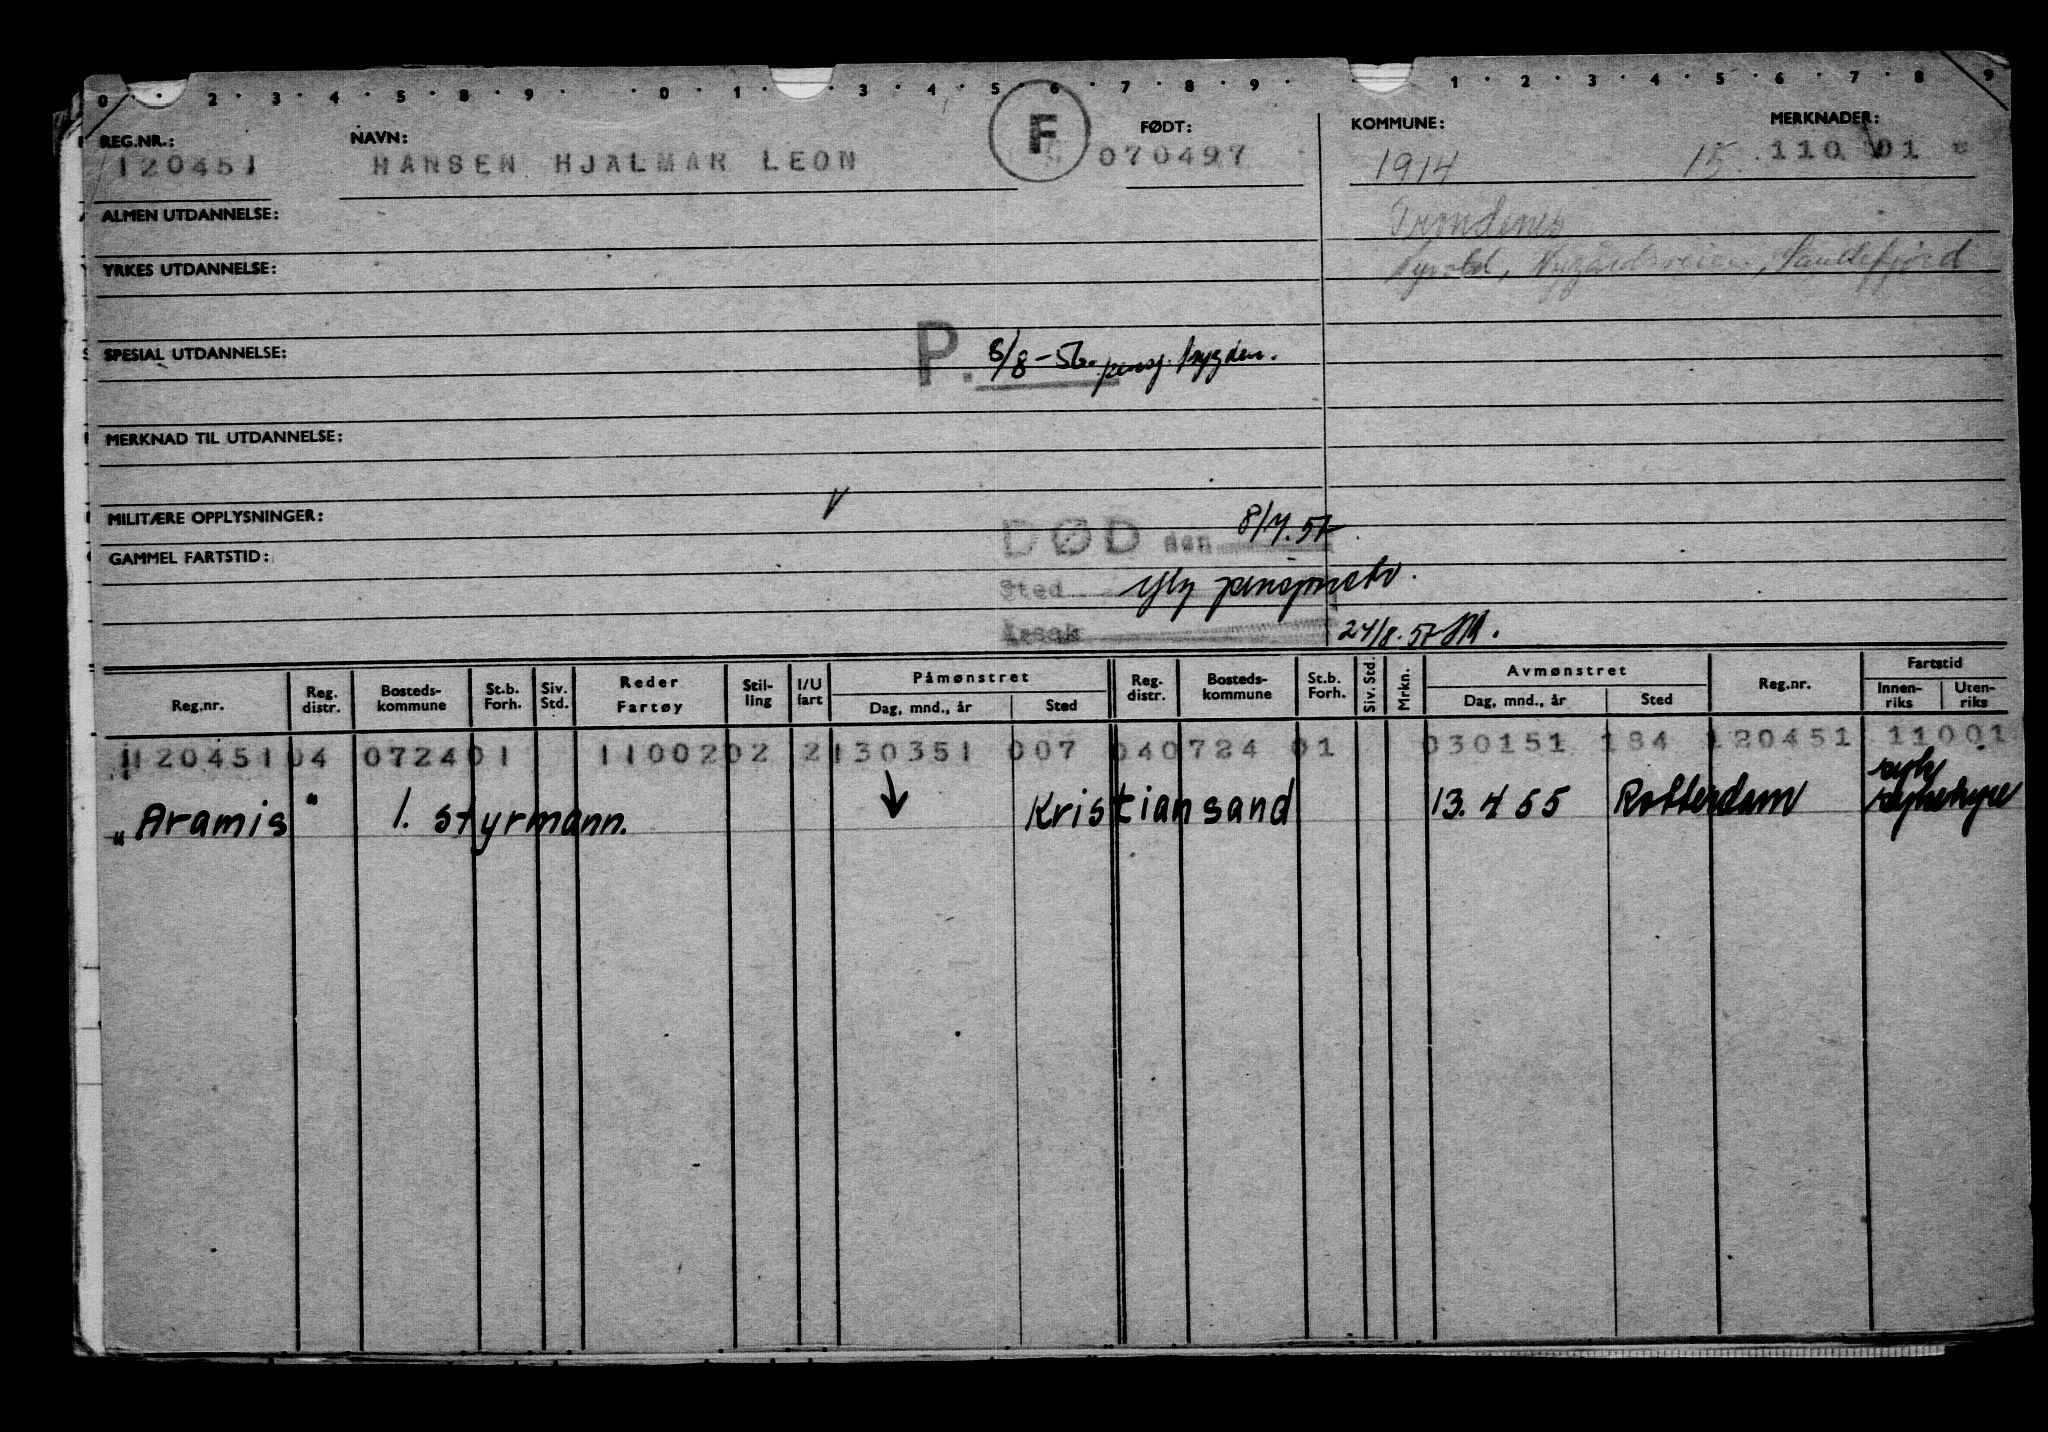 0 . . 2 . 3 . 4 . 5 . 8 . 9 . . 0 . 1 . . 3 . 4 . 5 . 6 . 7 . 8 . 9 . . 1 . 2 . 3 . 4 . 5 . 6 . 7 . 8 . 9
REG.NR.: NAVN: F FØDT: KOMMUNE: MERKNADER:
120451 HANSEN HJALMAR LEON 070497 1914 15. 110 01
ALMEN UTDANNELSE: Trondenes
YRKES UTDANNELSE: Nyvold, Nygårdsveien, Sandefjord
SPESIAL UTDANNELSE: P. 8/8-56. pensj. trygden.
MERKNAD TIL UTDANNELSE:
MILITÆRE OPPLYSNINGER: V DØD den 8/7.57
GAMMEL FARTSTID:
Sted pensjonstr.
Årsak 24/8.57
Reg.nr. Reg. distr. Bosteds-kommune St.b. Forh. Siv. Std. Reder Fartøy Stil-ling I/U fart Påmønstret Dag, mnd., år Sted Reg. distr. Bosteds-kommune St.b. Forh. Siv. Std. Mrkn. Avmønstret Dag, mnd., år Sted Reg.nr. Fartstid Innen-riks Uten-riks
120451 04 0724 01 110020 2 2 130351 007 04 0724 01 030151 184 120451 11001
"Aramis" 1. styrmann. ↓ Kristiansand 13.4 55 Rotterdam sykehyre